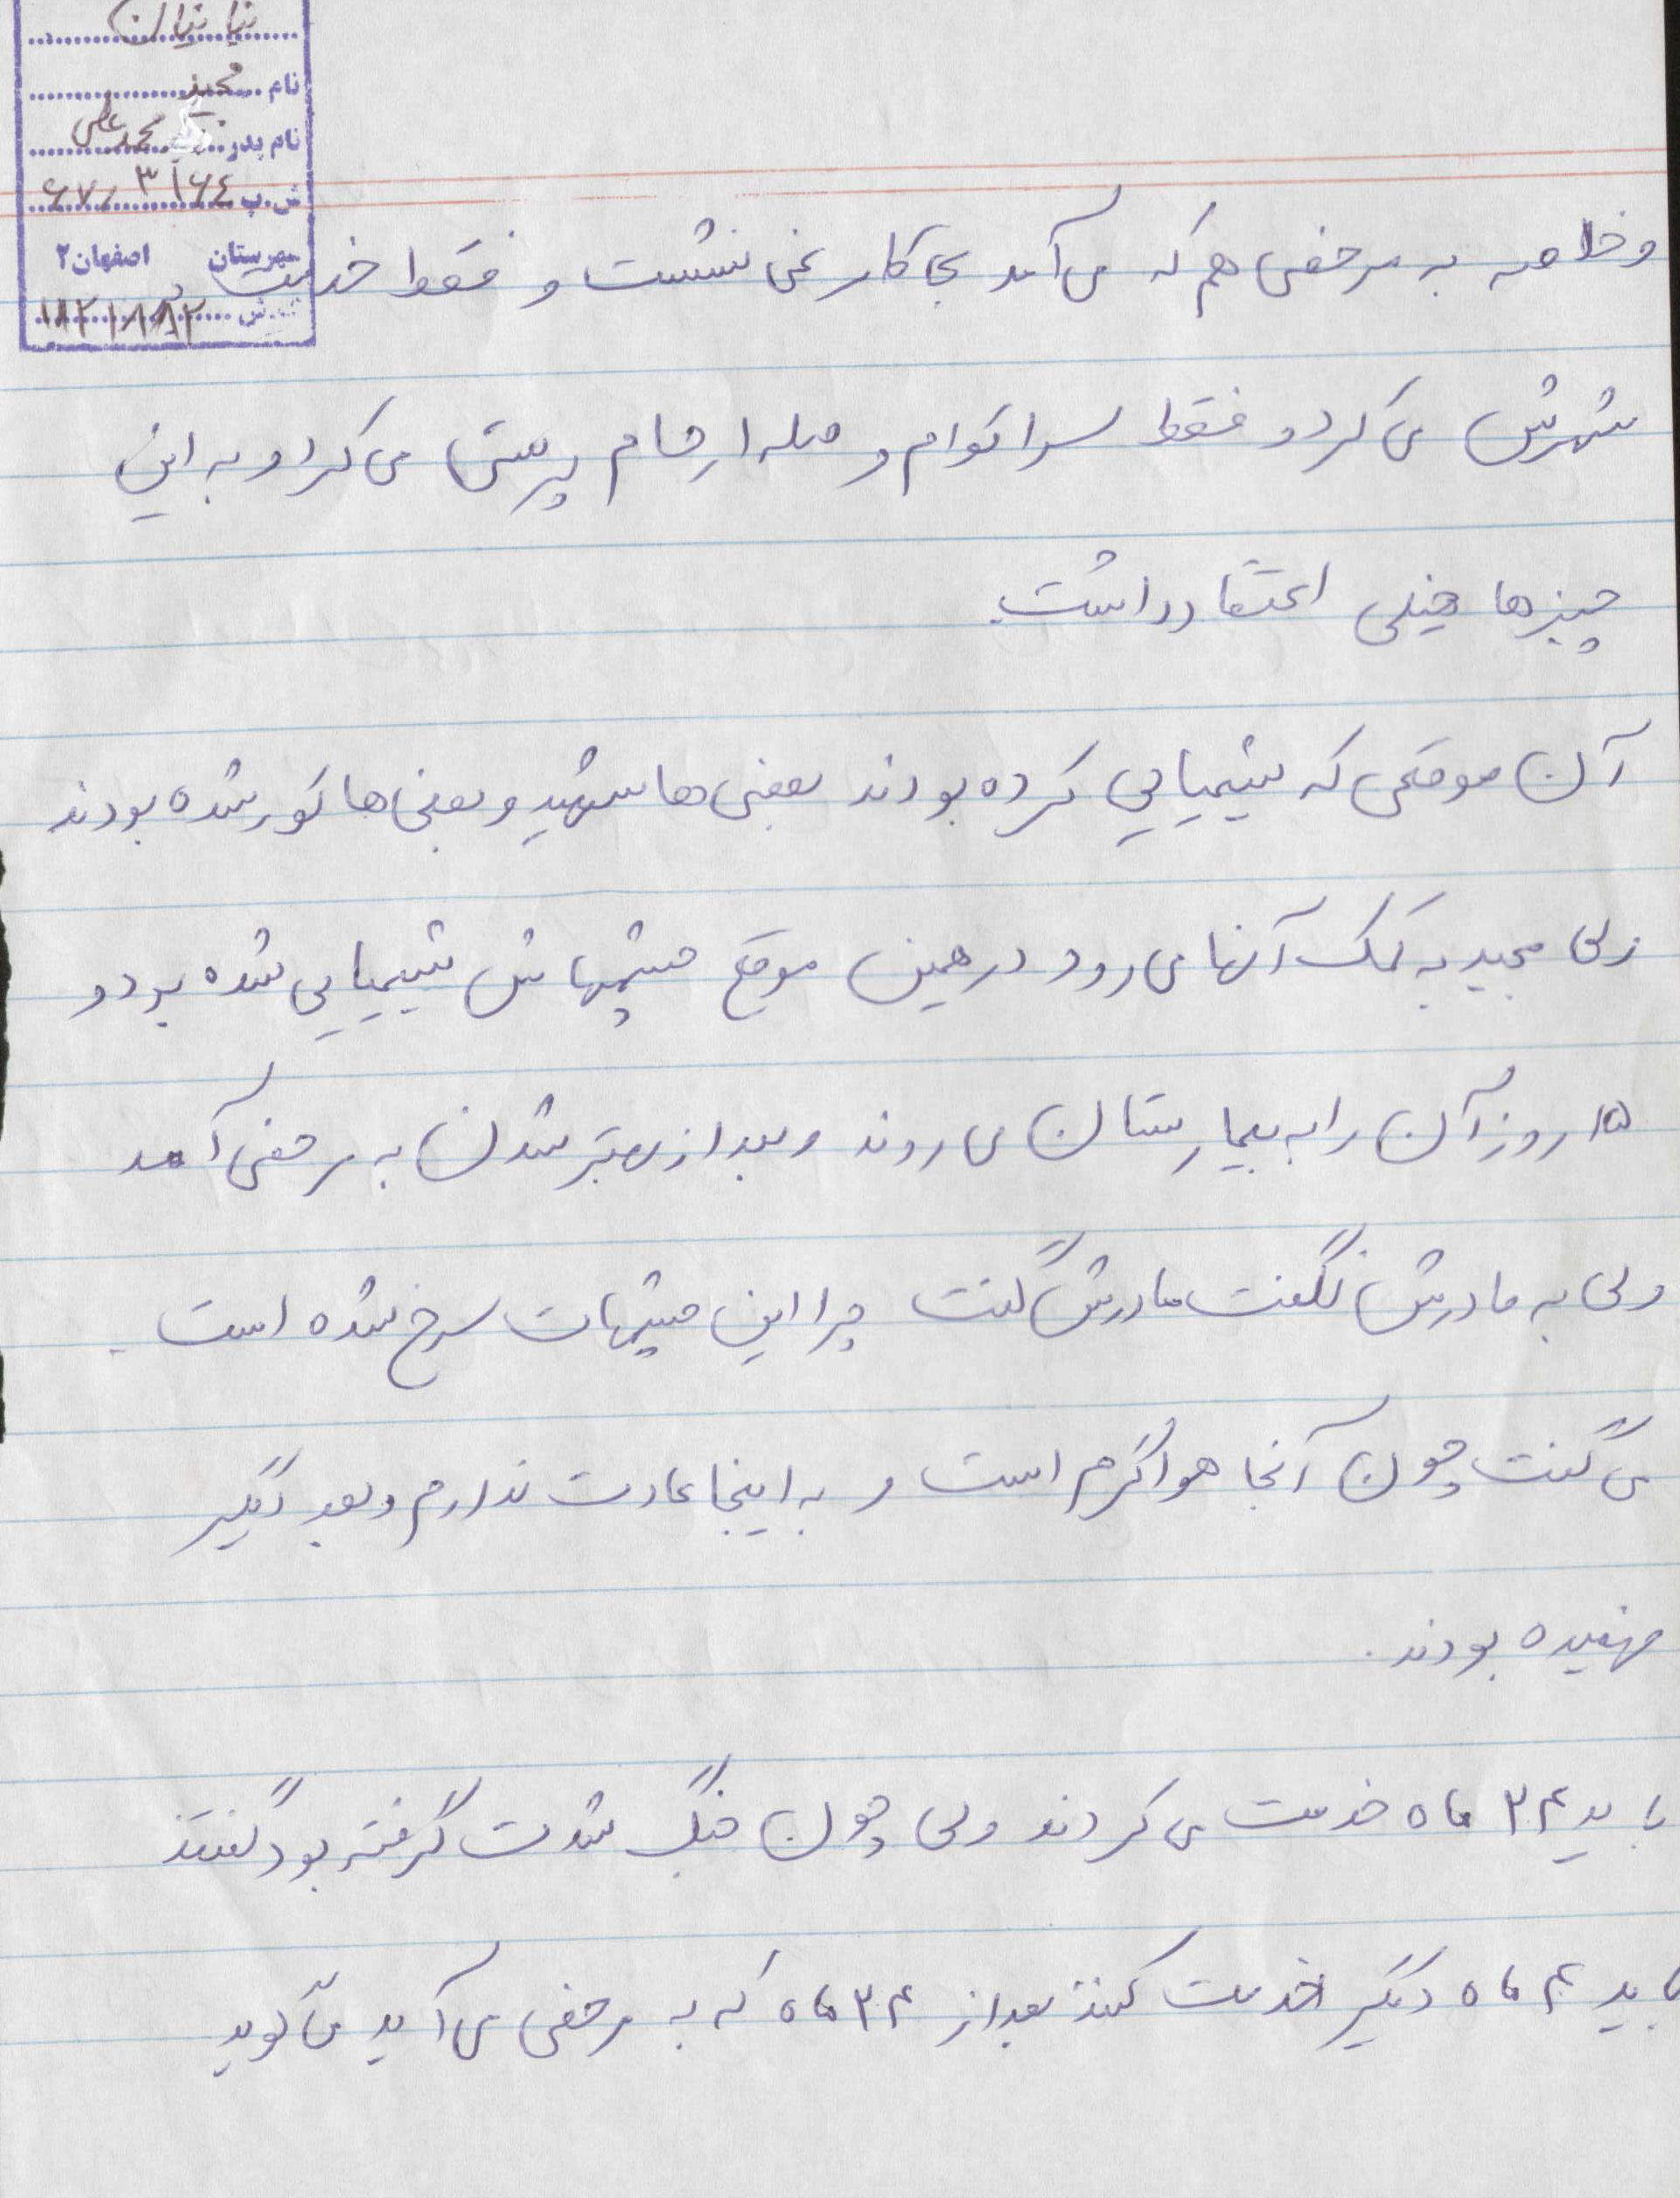 نام مجید
نام پدر محمد علی
ش.پ ۶۷/۳۱۶۴
شهرستان اصفهان ۲
وخلاصه به مرخصی هم که می آمد بی کار نمی نشست و فقط خدمت
شهرش می کرد و فقط سراکوام و صله ارحام پرستی می کرد و به این
چیزها خیلی اعتقاد داشت.
آن موقعی که شیمیایی کرده بودند بعضی ها شهید و بعضی ها کور شده بودند
ولی مجید به کمک آنها می رود در همین موقع چشمهاش شیمیایی شده بود و
۱۵ روز آن را به بیمارستان می روند و بعد از بهتر شدن به مرخصی آمد
ولی به مادرش نگفت مادرش گفت چرا این چشمهات سرخ شده است.
می گفت چون آنجا هوا گرم است و به اینجا عادت ندارم و بعد دیگر
فهمیده بودند.
باید ۲۴ ماه خدمت می کردند ولی چون جنگ شدت گرفته بود گفتند
باید ۴ ماه دیگر خدمت کنند بعد از ۲۴ ماه که به مرخصی می آید می گوید